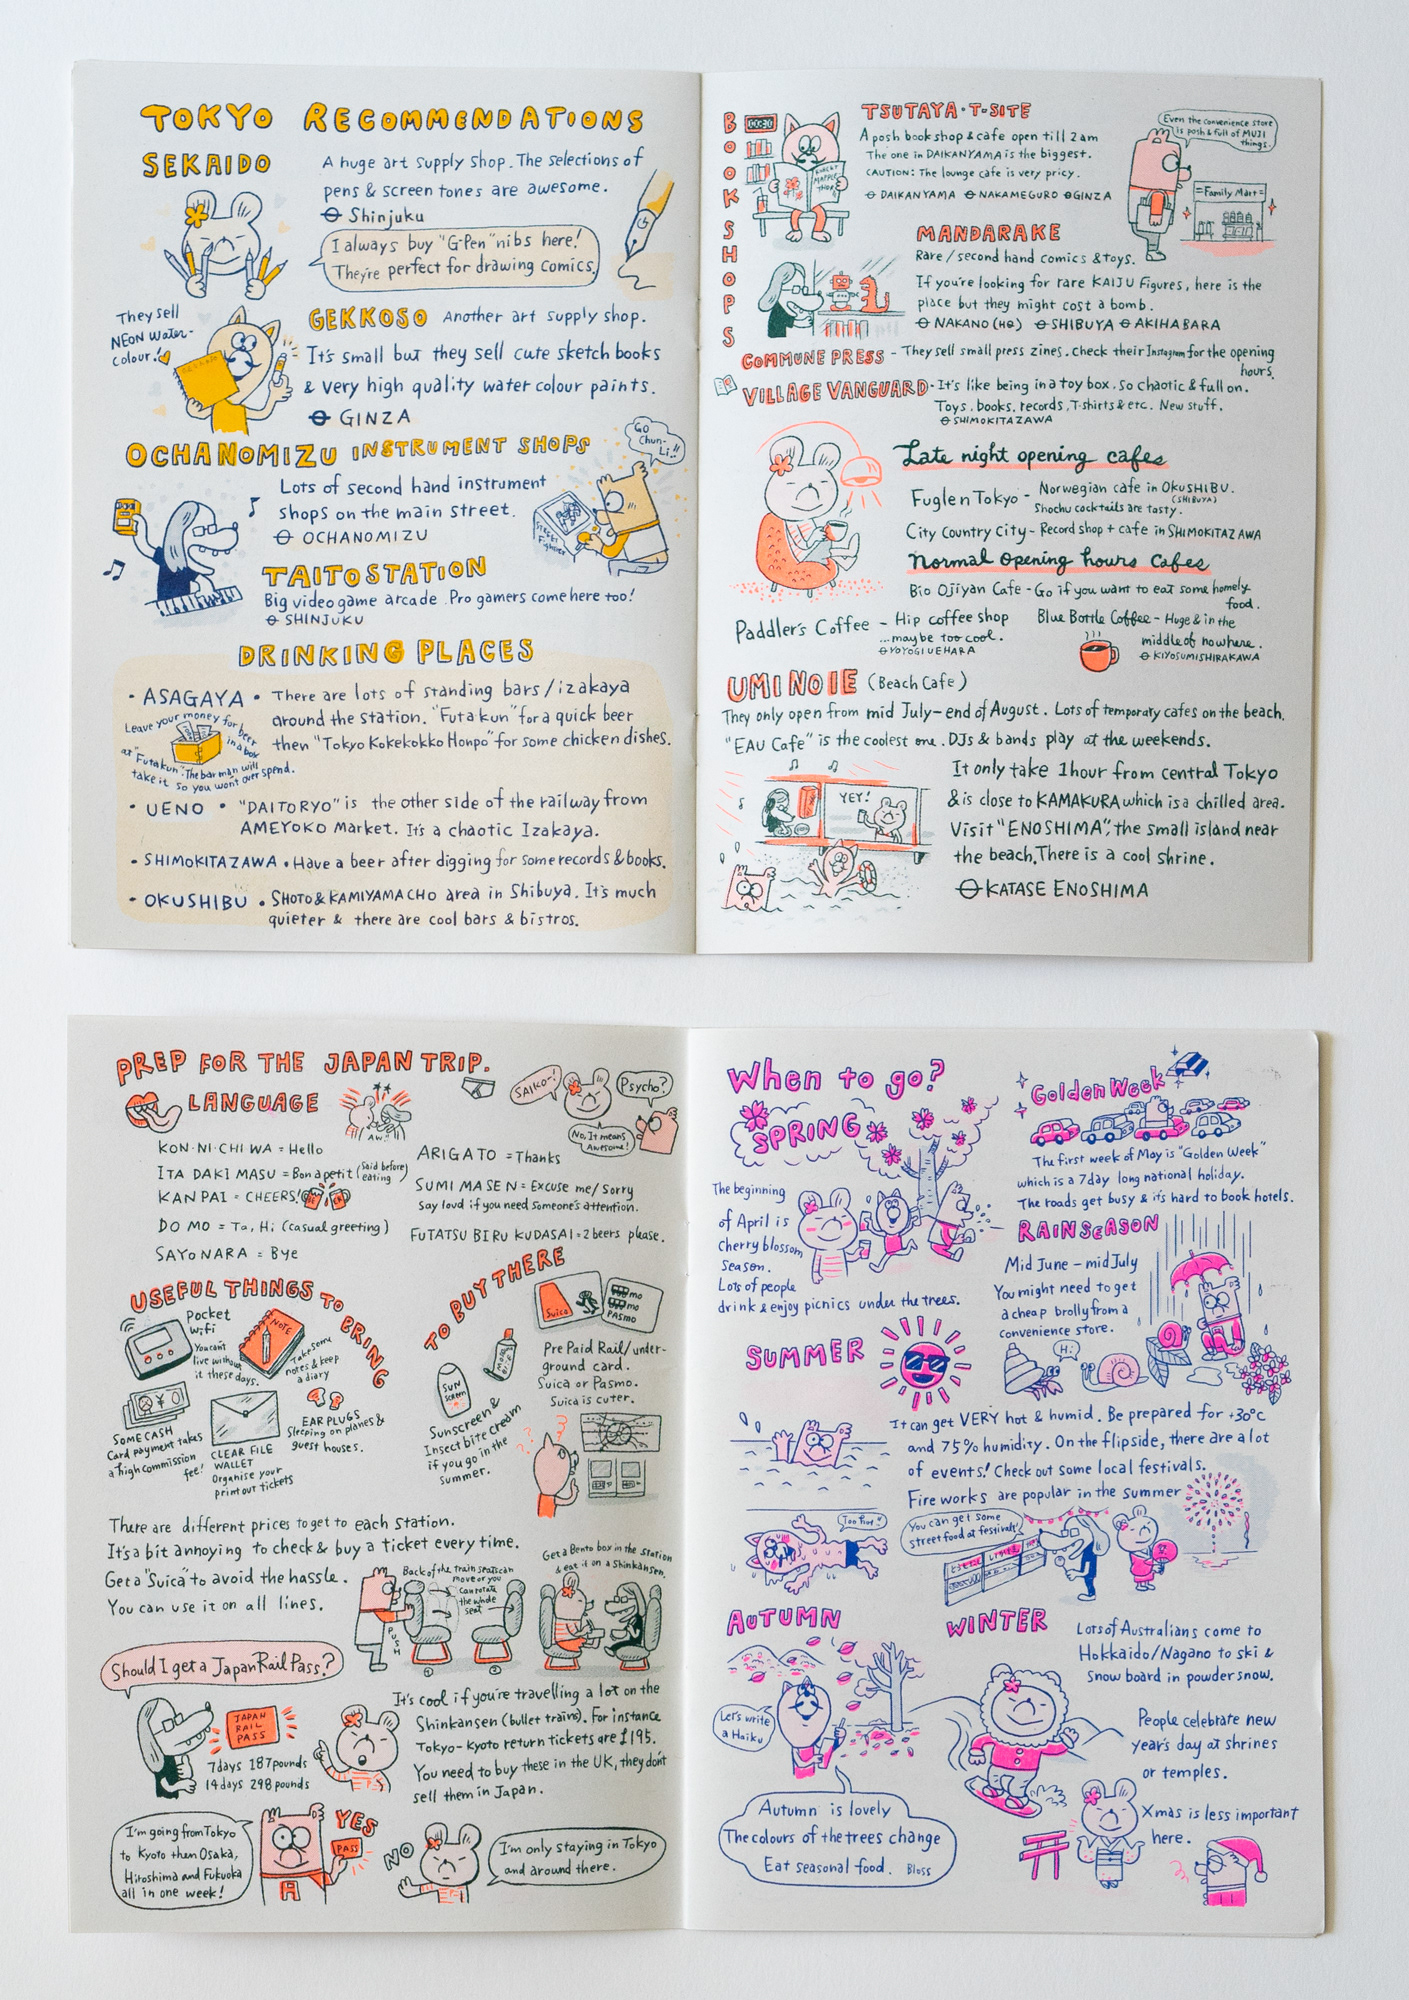 TOKYO RECOMMENDATIONS
SEKAIDO
A huge art supply shop. The selections of
pens & screen tones are awesome.
Shinjuku
I always buy "G-Pen" nibs here!
They're perfect for drawing comics.
They sell
NEON Water-
colour!
GEKKOSO Another art supply shop.
It's small but they sell cute sketch books
& very high quality water colour paints.
GINZA
OCHANOMIZU INSTRUMENT SHOPS
Lots of second hand instrument
shops on the main street.
OCHANOMIZU
GO
Chun-
Li!!
STREET
FIGHTER
TAITO STATION
Big video game arcade. Pro gamers come here too!
SHINJUKU
DRINKING PLACES
• ASAGAYA • There are lots of standing bars/izakaya
around the station. "Futakun" for a quick beer
then "Tokyo Kokekokko Honpo" for some chicken dishes.
Leave your money for beer
in a box
at "Futakun". The bar man will
take it so you won't over spend.
• UENO • "DAITORYO" is the other side of the railway from
AMEYOKO Market. It's a chaotic Izakaya.
• SHIMOKITAZAWA • Have a beer after digging for some records & books.
• OKUSHIBU • SHOTO & KAMIYAMACHO area in Shibuya. It's much
quieter & there are cool bars & bistros.
BOOKSHOPS
TSUTAYA • T-SITE
A posh bookshop & cafe open till 2am
The one in DAIKANYAMA is the biggest.
CAUTION: The lounge cafe is very pricy.
DAIKANYAMA NAKAMEGURO GINZA
Even the convenience store
is posh & full of MUJI
things.
Family Mart
MANDARAKE
Rare/second hand comics & toys.
If you're looking for rare KAIJU Figures, here is the
place but they might cost a bomb.
NAKANO (HQ) SHIBUYA AKIHABARA
COMMUNE PRESS - They sell small press zines. Check their Instagram for the opening
hours.
VILLAGE VANGUARD - It's like being in a toy box. So chaotic & full on.
Toys, books, records, T-shirts & etc. New stuff.
SHIMOKITAZAWA
Late night opening cafes
Fuglen Tokyo - Norwegian cafe in OKUSHIBU.
(SHIBUYA)
Shochu cocktails are tasty.
City Country City - Record shop + cafe in SHIMOKITAZAWA
Normal opening hours Cafes
Bio Ojiyan Cafe - Go if you want to eat some homely
food.
Paddler's Coffee - Hip coffee shop
...maybe too cool.
YOYOGI UEHARA
Blue Bottle Coffee - Huge & in the
middle of nowhere.
KIYOSUMISHIRAKAWA
UMI NO IE (Beach Cafe)
They only open from mid July - end of August. Lots of temporary cafes on the beach.
"EAU Cafe" is the coolest one. DJs & bands play at the weekends.
YEY!
It only take 1 hour from central Tokyo
& is close to KAMAKURA which is a chilled area.
Visit "ENOSHIMA", the small island near
the beach, There is a cool shrine.
KATASE ENOSHIMA
PREP FOR THE JAPAN TRIP.
LANGUAGE
AW..
SAIKO-!
Psycho?
No, It means
Awesome!
KON·NI·CHI WA = Hello
ITA DAKI MASU = Bon apetit (Said before
eating)
KAN PAI = CHEERS!
DO MO = Ta, Hi (casual greeting)
SAYO NARA = Bye
ARIGATO = Thanks
SUMI MASEN = Excuse me/Sorry
Say loud if you need someone's attention.
FUTATSU BIRU KUDASAI = 2 beers please.
USEFUL THINGS TO BRING
Pocket
wifi
You can't
live without
it these days.
NOTE
Take some
notes & keep
a diary
SOME CASH
Card payment takes
a high commission
fee!
CLEAR FILE
WALLET
Organise your
print out tickets
EAR PLUGS
Sleeping on planes &
guest houses.
TO BUY THERE
Suica
PASMO
SUN
SCREEN
Sunscreen &
Insect bite cream
if you go in the
summer.
Pre Paid Rail/under-
ground card.
Suica or Pasmo.
Suica is cuter.
There are different prices to get to each station.
It's a bit annoying to check & buy a ticket every time.
Get a "Suica" to avoid the hassle.
You can use it on all lines.
Back of the train seats can
move or you
can rotate
the whole
seat
PUSH
① ②
Get a Bento box in the station
& eat it on a Shinkansen.
Should I get a Japan Rail Pass?
JAPAN
RAIL
PASS
7days 187 pounds
14days 298 pounds
It's cool if you're travelling a lot on the
Shinkansen (bullet trains). For instance
Tokyo-Kyoto return tickets are £195.
You need to buy these in the UK, they don't
sell them in Japan.
I'm going from Tokyo
to Kyoto then Osaka,
Hiroshima and Fukuoka
all in one week!
YES
PASS
NO
I'm only staying in Tokyo
and around there.
When to go?
SPRING
The beginning
of April is
cherry blossom
season.
Lots of people
drink & enjoy picnics under the trees.
Golden Week
The first week of May is "Golden Week"
which is a 7day long national holiday.
The roads get busy & it's hard to book hotels.
RAIN SEASON
Mid June - mid July
You might need to get
a cheap brolly from a
convenience store.
Hi
SUMMER
It can get VERY hot & humid. Be prepared for +30°c
and 75% humidity. On the flipside, there are a lot
of events! Check out some local festivals.
Fire works are popular in the summer
Too Hot!!
You can get some
street food at festivals!
AUTUMN
Let's write
a Haiku
Autumn is lovely
The colours of the trees change
Eat seasonal food. Bloss
WINTER
Lots of Australians come to
Hokkaido/Nagano to ski &
snow board in powder snow.
People celebrate new
year's day at shrines
or temples.
Xmas is less important
here.